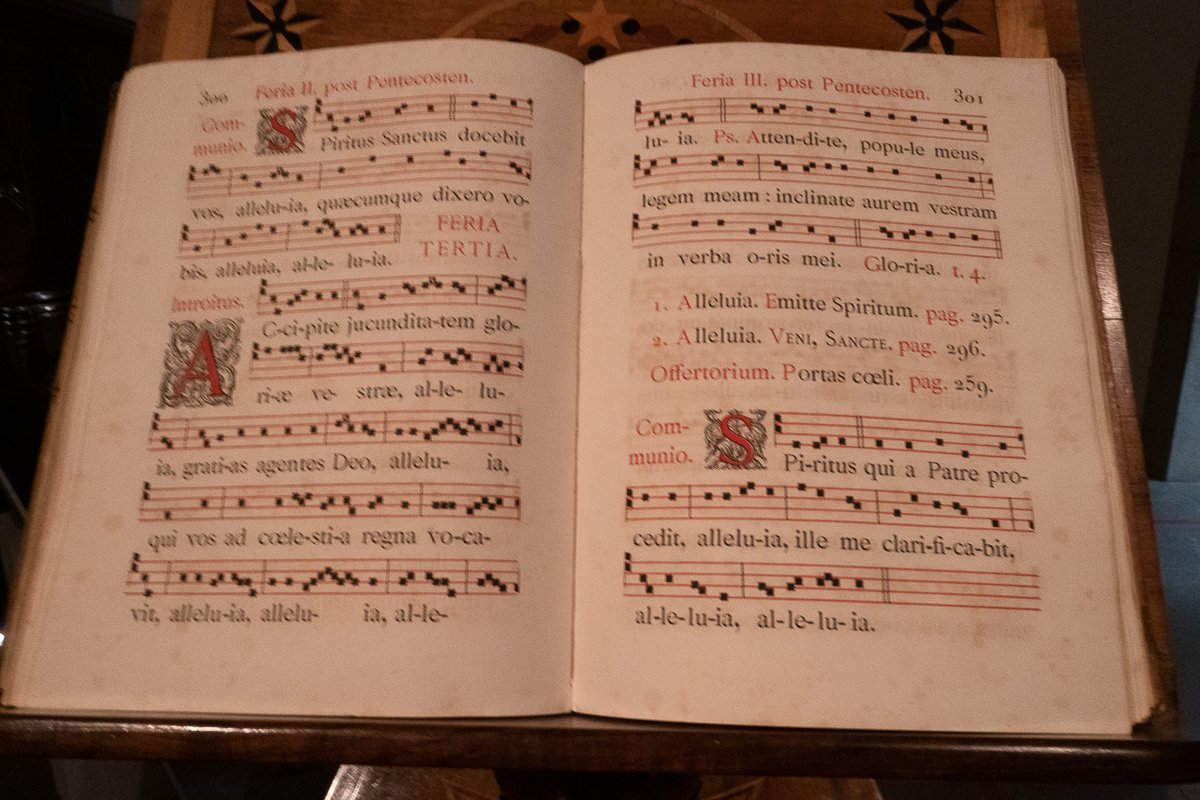 300 Feria II. post Pentecosten.
Com-
munio.
SPiritus Sanctus docebit
vos, allelu-ia, quæcumque dixero vo-
bis, alleluia, al-le- lu-ia.
FERIA
TERTIA.
Introitus.
AC-ci-pite jucundita-tem glo-
ri-æ ve- stræ, al-le- lu-
ia, grati-as agentes Deo, allelu- ia,
qui vos ad cœle-sti-a regna vo-ca-
vit, allelu-ia, allelu- ia, al-le-
Feria III. post Pentecosten. 301
lu- ia. Ps. Atten-di-te, popu-le meus,
legem meam : inclinate aurem vestram
in verba o-ris mei. Glo-ri-a. t. 4.
1. Alleluia. Emitte Spiritum. pag. 295.
2. Alleluia. VENI, SANCTE. pag. 296.
Offertorium. Portas cœli. pag. 259.
Com-
munio.
SPi-ritus qui a Patre pro-
cedit, allelu-ia, ille me clari-fi-ca-bit,
al-le-lu-ia, al-le-lu- ia.